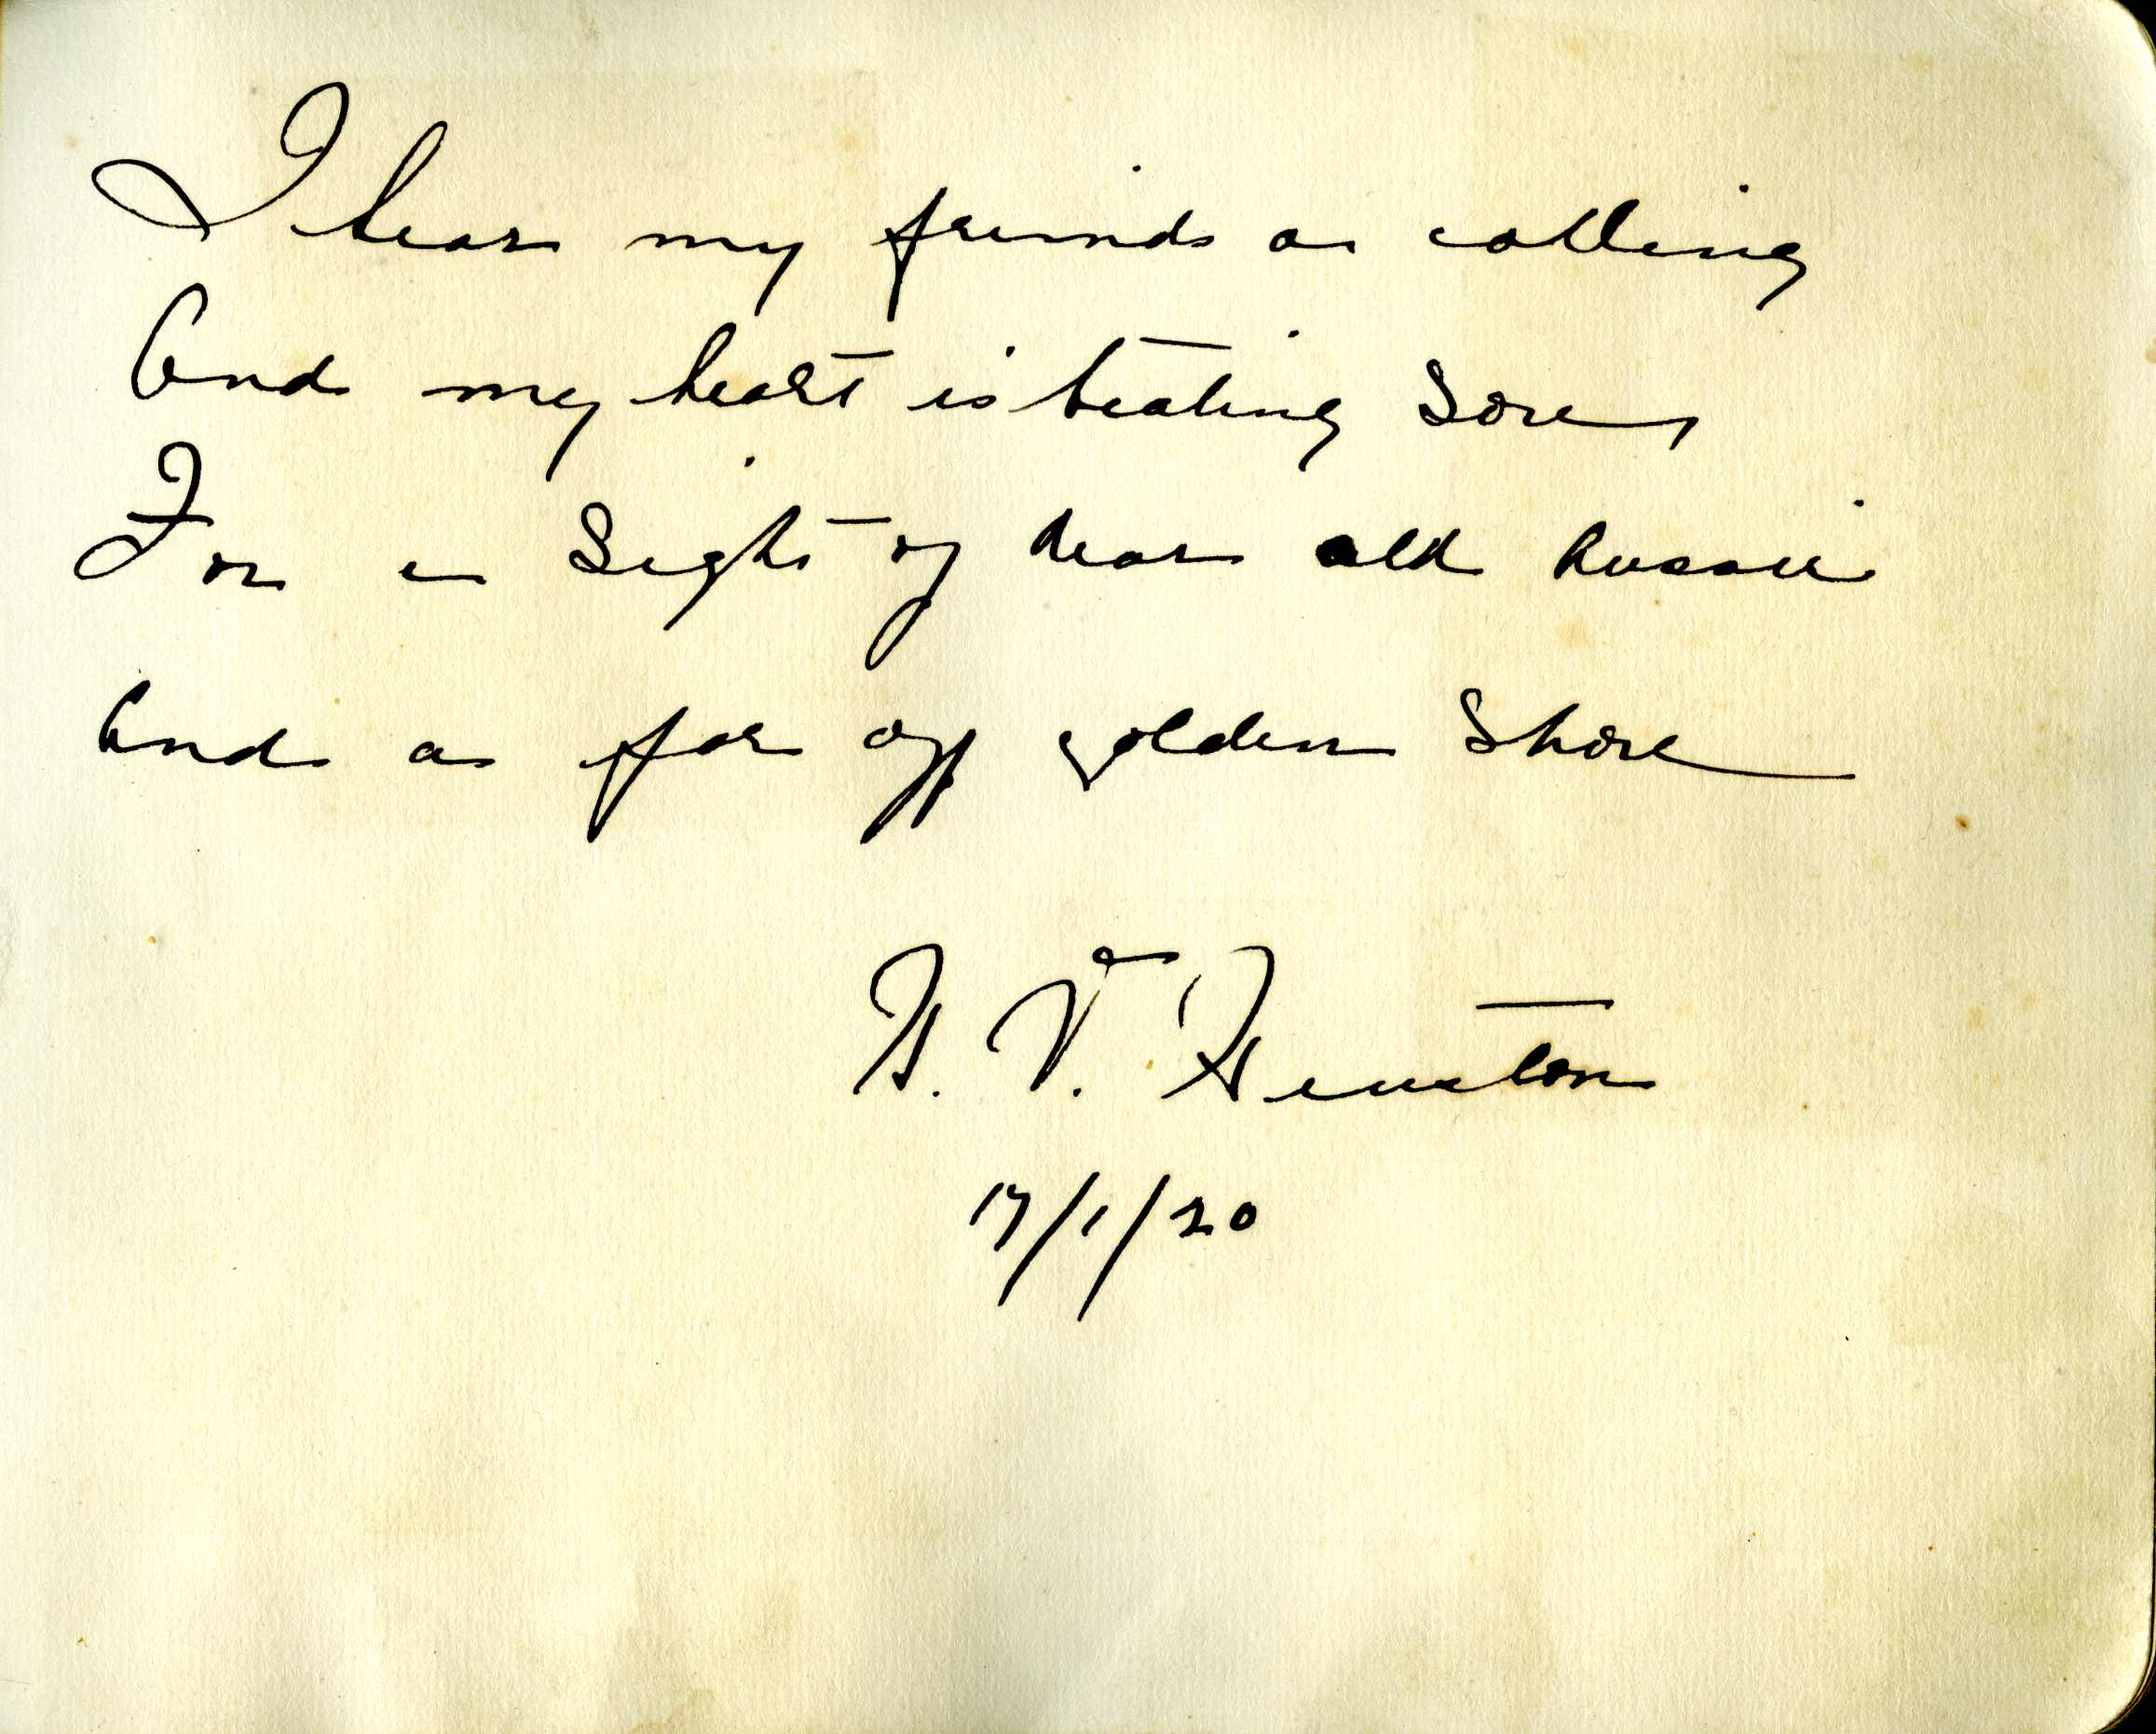 I hear my freinds a calling
And my heart is beating Sore,
For a Sight of dear old Russia
And a far off golden Shore
17/1/20